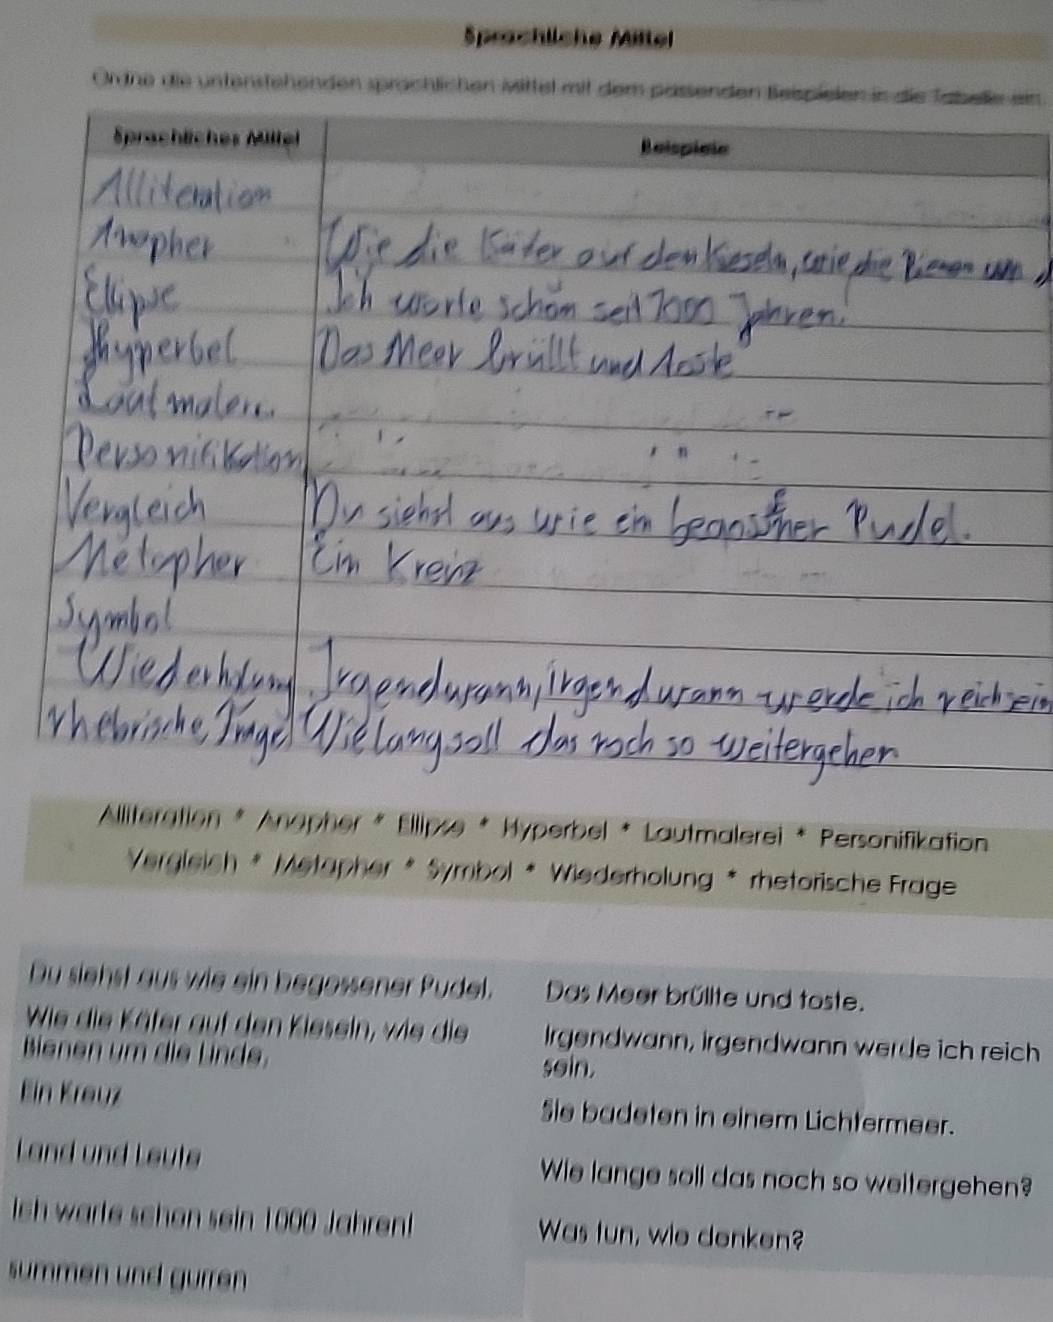 Sprachliche Mittel
Ordne die untenstehenden sprachlichen Mittel mit dem passenden Beispielen in die Tabelle ein.
Sprachliches Mittel Beispiele
Alliteration
Anapher Wie die Käter auf den Kieseln, wie die Bienen um d
Ellipse Ich warte schon seit 1000 Jahren!
Hyperbel Das Meer brüllt und toste
Lautmalerei
Personifikation
Vergleich Du siehst aus wie ein begossener Pudel.
Metapher Ein Kreuz
Symbol
Wiederholung Irgendwann, irgendwann werde ich reich sein
rhetorische Frage Wie lang soll das noch so weitergehen
Alliteration * Anapher * Ellipse * Hyperbel * Lautmalerei * Personifikation
Vergleich * Metapher * Symbol * Wiederholung * rhetorische Frage
Du siehst aus wie ein begossener Pudel.
Wie die Käfer auf den Kieseln, wie die
Bienen um die Linde,
Ein Kreuz
Land und Leute
Ich warte schon sein 1000 Jahren!
summen und gurren
Das Meer brüllte und toste.
Irgendwann, irgendwann werde ich reich
sein.
Sie badeten in einem Lichtermeer.
Wie lange soll das noch so weitergehen?
Was tun, wie denken?